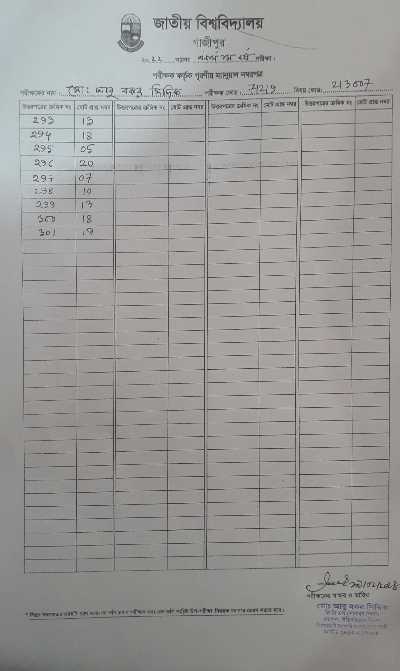 জাতীয় বিশ্ববিদ্যালয়
গাজীপুর
২০২২ সালের অনার্স ১ম বর্ষ পরীক্ষা।
পরীক্ষক কর্তৃক পূরণীয় ম্যানুয়াল নম্বরপত্র
পরীক্ষকের নাম : মো: আবু বকর সিদ্দিক পরীক্ষক কোড : বিষয় কোড: 213607
উত্তরপত্রের ক্রমিক নং মোট প্রাপ্ত নম্বর উত্তরপত্রের ক্রমিক নং মোট প্রাপ্ত নম্বর উত্তরপত্রের ক্রমিক নং মোট প্রাপ্ত নম্বর উত্তরপত্রের ক্রমিক নং মোট প্রাপ্ত নম্বর
293 13
294 18
295 05
296 20
297 07
298 10
299 13
300 18
301 19
পরীক্ষকের স্বাক্ষর ও তারিখ
মোঃ আবু বকর সিদ্দিক